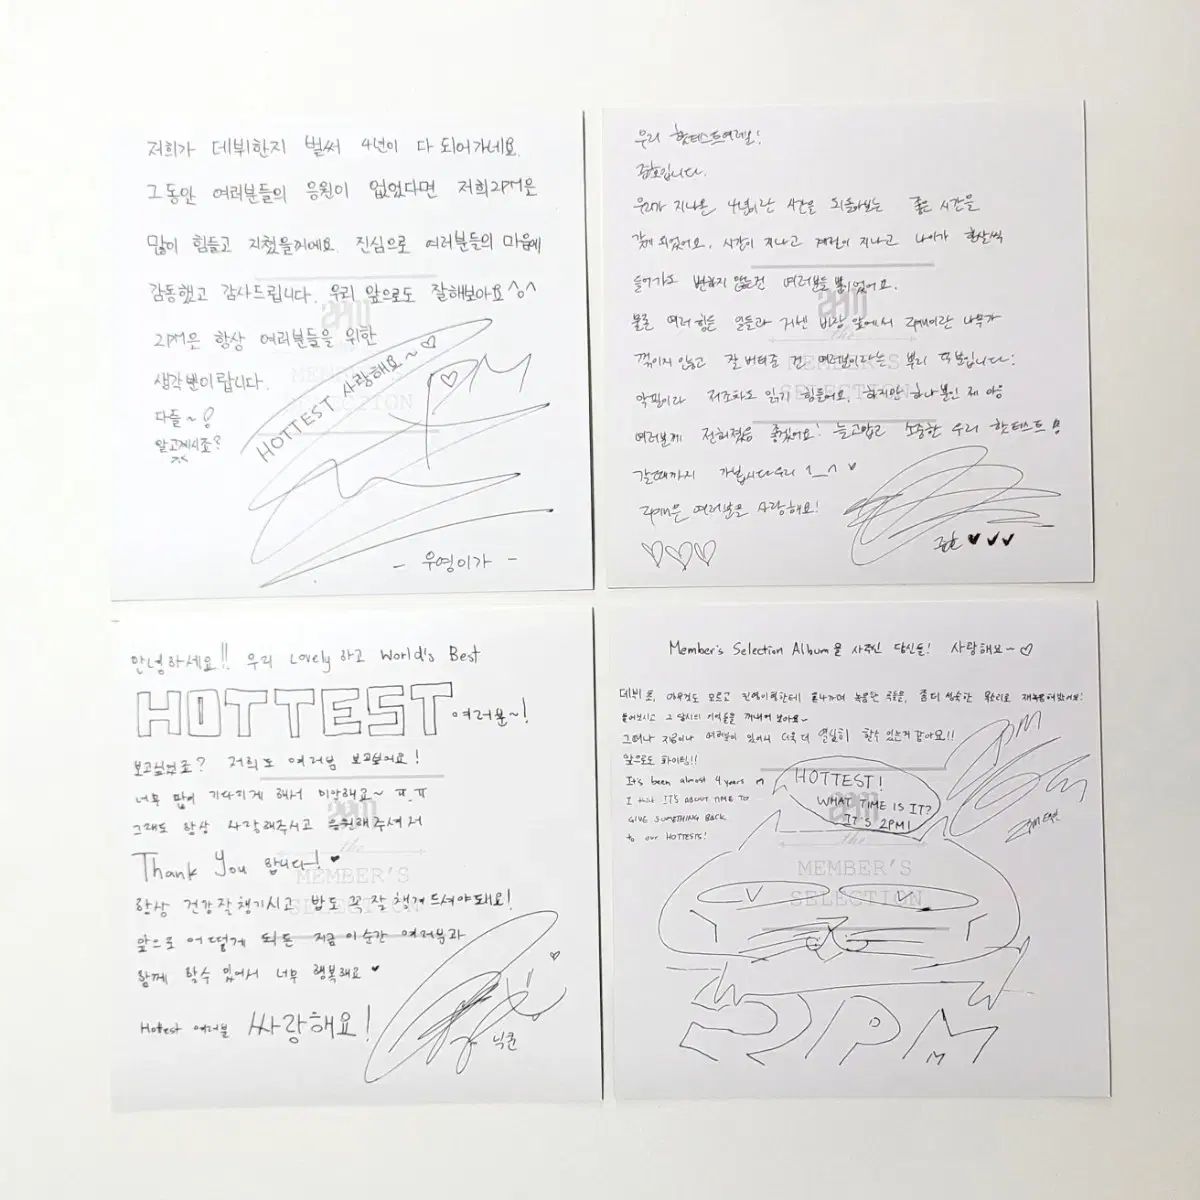 저희가 데뷔한지 벌써 4년이 다 되어가네요.
그동안 여러분들의 응원이 없었다면 저희2PM은
많이 힘들고 지쳤을꺼예요. 진심으로 여러분들의 마음에
감동했고 감사드립니다. 우리 앞으로도 잘해보아요^o^
2PM은 항상 여러분들을 위한
생각뿐이랍니다.
다들~
알고계시죠?
HOTTEST 사랑해요~♡
2PM
- 우영이가 -
우리 핫테스트여러분!
준호입니다.
우리가 지나온 4년이란 시간을 되돌아보는 좋은 시간을
갖게 되었어요. 시간이 지나고 계절이 지나고 나이가 한살씩
들어가도 변하지 않는건 여러분들 뿐이었어요.
물론 여러 힘든 일들과 거센 바람 앞에서 2PM이란 나무가
꺾이지 않고 잘 버텨준 건 여러분이라는 뿌리 덕분입니다!
악필이라 저조차도 읽기 힘들어요. 하지만 하나뿐인 제 마음
여러분께 전해졌음 좋겠어요! 늘고맙고 소중한 우리 핫테스트!
갈때까지 가봅시다우리 ^_^ ♥
2PM은 여러분을 사랑해요!
♡♡♡
준호 ♥♥♥
안녕하세요!! 우리 Lovely 하고 World's Best
HOTTEST 여러분~!
보고싶었죠? 저희도 여러분 보고싶어요!
너무 많이 기다리게 해서 미안해요~ ㅠ.ㅠ
그래도 항상 사랑해주시고 응원해주셔서
Thank You 합니다~! ♥
항상 건강잘챙기시고 밥도 꼭 잘 챙겨 드셔야돼요!
앞으로 어떻게 되든 지금 이순간 여러분과
함께 할수 있어서 너무 행복해요 ♥
Hottest 여러분 싸랑해요!
닉쿤
Member's Selection Album을 사주신 당신들! 사랑해요~♡
데뷔 초, 아무것도 모르고 진영이형한테 혼나가며 녹음한 곡들을, 좀더 성숙한 목소리로 재녹음해봤어요!
들어보시고 그 당시의 기억들을 꺼내어 보아요~
그때나 지금이나 여러분이 있어서 더욱 더 열심히 할수 있는거 같아요!!
앞으로도 화이팅!!
It's been almost 4 years n
I think IT'S ABOUT TIME TO
GIVE SOMETHING BACK
to our HOTTESTS!
HOTTEST!
WHAT TIME IS IT?
IT'S 2PM!
2PM
2PM 택연
2PM
the
MEMBER'S
SELECTION
the
MEMBER'S
SELECTION
the
MEMBER'S
SELECTION
the
MEMBER'S
SELECTION